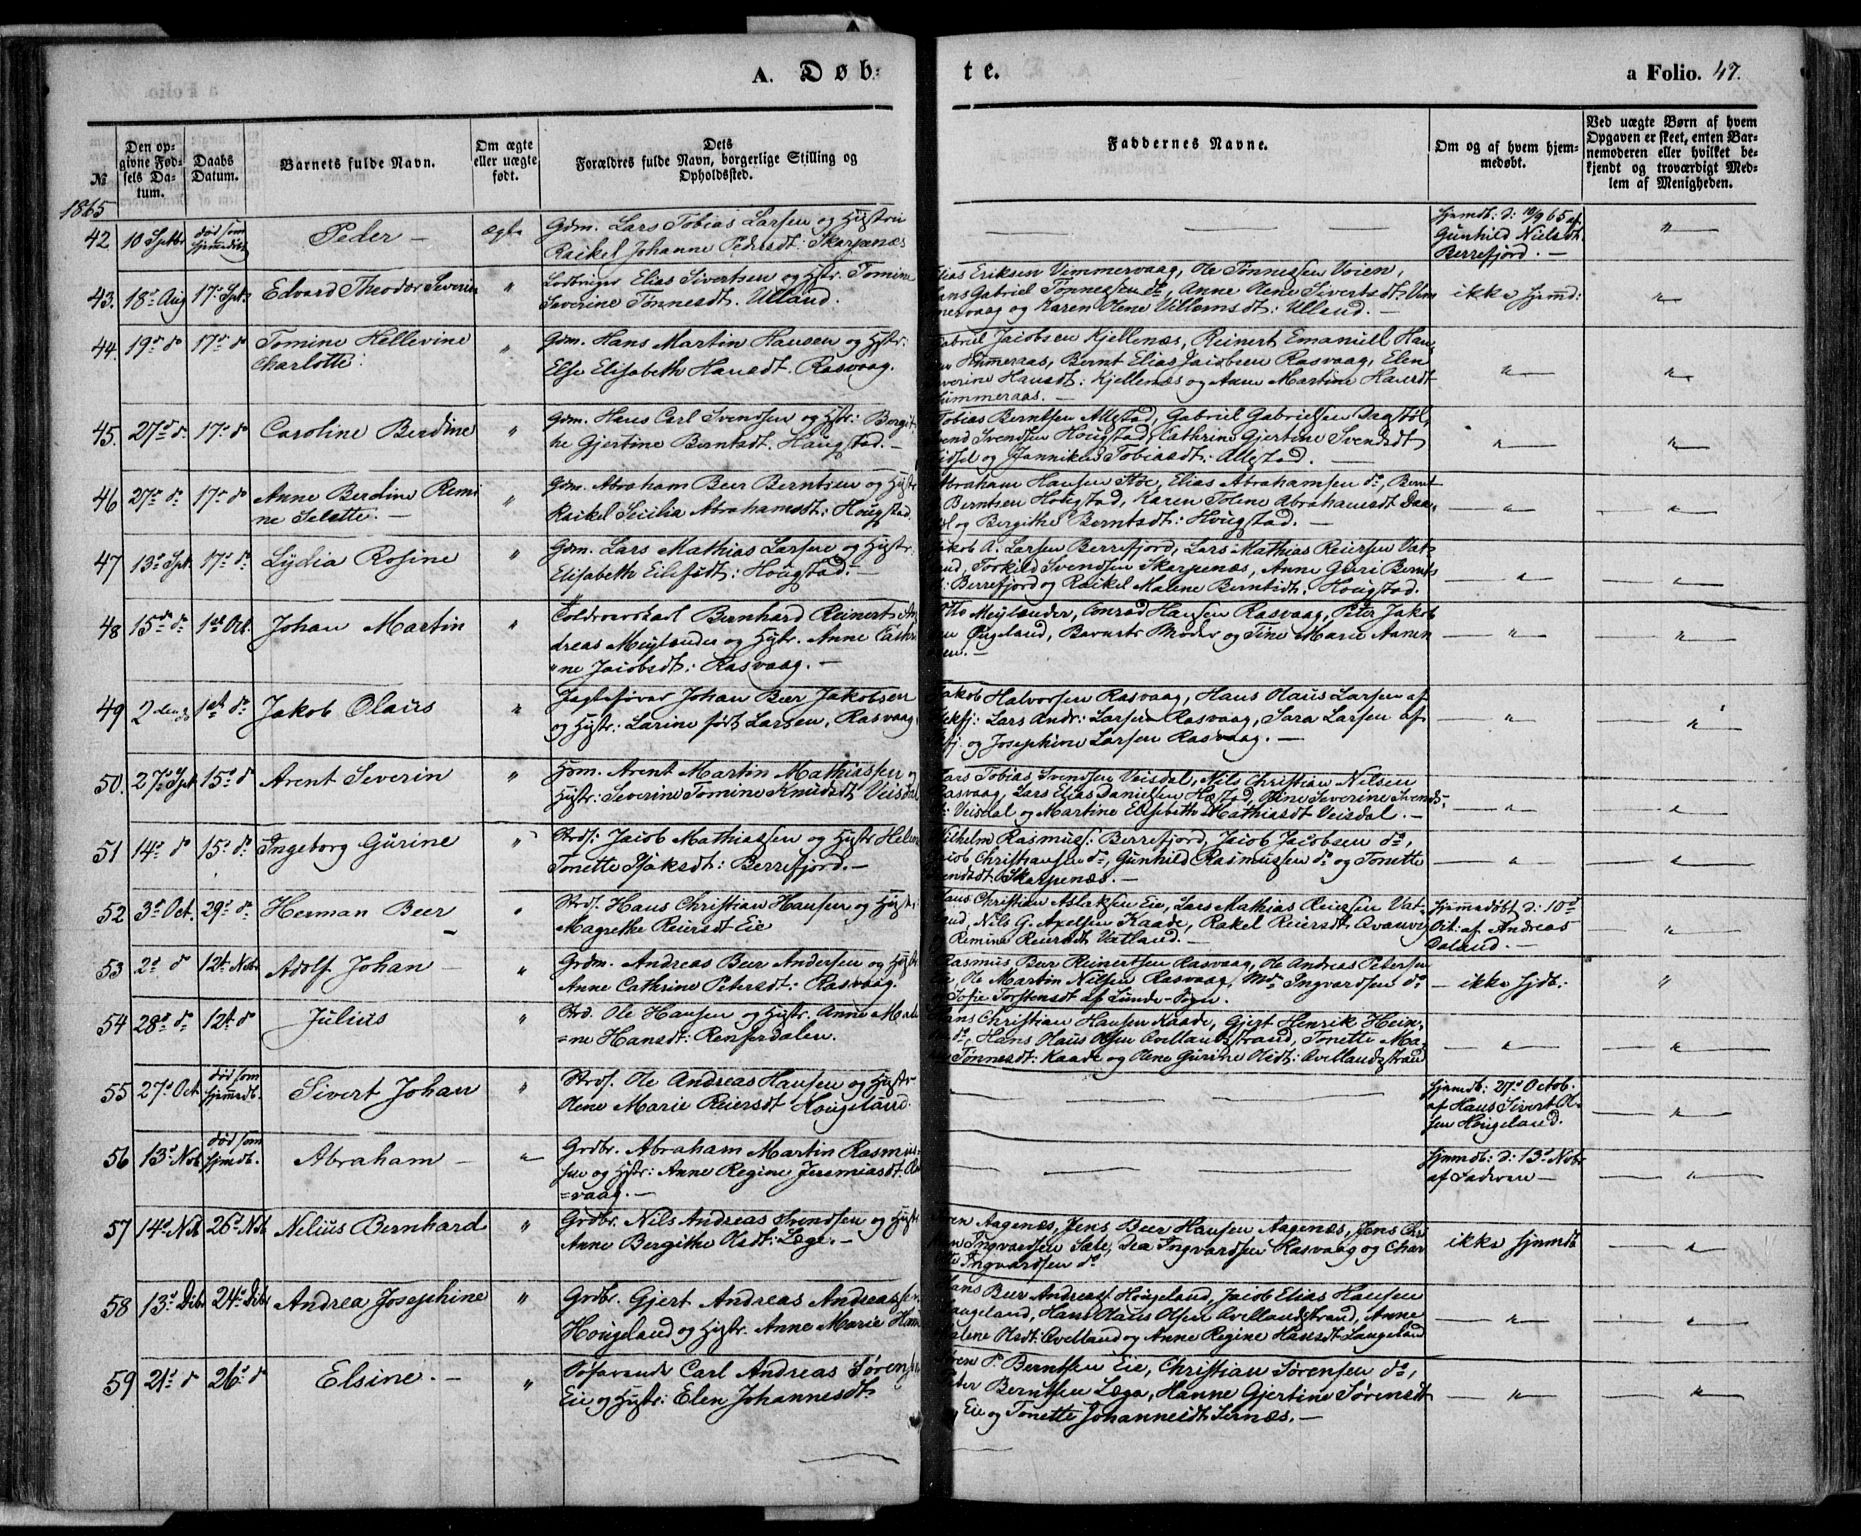 A. Døb-
te.
a Folio. 47.
№
Den op-
givne Fød-
sels Da-
tum.
Daabs
Datum.
Barnets fulde Navn.
Om ægte
eller uægte
født.
Dets
Forældres fulde Navn, borgerlige Stilling og
Opholdsted.
Faddernes Navne.
Om og af hvem hjem-
medøbt.
Ved uægte Børn af hvem
Opgaven er skeet, enten Bar-
nemoderen eller hvilket be-
kjendt og troværdigt Med-
lem af Menigheden.
1865
42 10 Septbr død som hjemmedøbt Peder — ægte Gdm. Lars Tobias Larsen og Hustru
Raikel Johanne Pedersdt: Skarpenæs
Hjmdb: d: 10/9 65 af
Gunhild Nielsdt:
Berrefjord. — "
43. 18d Aug 17d Sptr Edvard Theodor Severin " Lodtniger Elias Sivertsen og Hstr. Tomine
Severine Tønnesdt. Ulland.
Elias Eriksen Vimmervaag, Ole Tønnessen Voien,
Hans Gabriel Tønnessen do, Anne Olene Sivertsdt: Vim
mervaag og Karen Olene Villumsdt: Ulland. — ikke hjmd: "
44. 19d do 17d do Tomine Hellevine
Charlotte. " Gdm. Hans Martin Hansen og Hstr:
Else Elisabeth Hansdt. Rasvaag.
Gabriel Jacobsen Kjellenæs, Reinert Emanuell Han
sen Hummeraas, Bernt Elias Jacobsen Rasvaag, Elen
Severine Hansdt: Kjellenæs og Anne Martine Hansdt
Hummeraas. — " "
45. 27d do 17d do Caroline Berdine " Gdm. Hans Carl Svendsen og Hstr: Bergit
he Gjertine Berntsdt. Hougstad. —
Tobias Berntsen Allestad, Gabriel Gabrielsen Dagstøl,
Svend Svendsen Hougstad, Cathrine Gjertine Svendsdt
og Janniken Tobiasdt: Allestad. — " "
46 27d do 17d do Anne Berdine Remi
ne Selette. — " Gdm. Abraham Beer Berntsen og Hstr
Raikel Secilia Abrahamsdt: Hougstad.
Abraham Hansen Støe, Elias Abrahamsen do, Bernt
Berntsen Hougstad, Karen Tolene Abrahamsdt Daa-
og Bergithe Berntsdt: Hougstad. — " "
47 13d Spt. 17d do Lydia Rosine " Gdm. Lars Mathias Larsen og Hstr:
Elisabeth Eilefsdt: Hougstad. —
Jakob A. Larsen Berrefjord, Lars Mathias Reiersen Vat-
land, Torkild Svendsen Skarpenæs, Anne Guri Bernts
dt: Berrefjord og Raikel Malene Berntsdt. Hougstad. " "
48 15de do 1ste Oct. Johan Martin " Toldroerskarl Bernhard Reinerts An
dreas Meylænder og Hstr. Anne Cathri
"ne Jacobsdt: Rasvaag. —
Otto Meylænder, Conrad Hansen Rasvaag, Peter Jakob
sen Øugeland, Barnets Moder og Tine Marie Aanen
sen. — " "
49 2den do 1ste do Jakob Olaus " Jagtefører Johan Beer Jakobsen
og Hstr: Larine født Larsen, Rasvaag
Jakob Halvorsen Rasvaag, Hans Olaus Larsen af
Flekkefj: Lars Andr: Larsen Rasvaag, Sara Larsen af
Flekkfj. og Josephine Larsen Rasvaag. — " "
50. 27d Spt 15d do Arent Severin " Hsm. Arent Martin Mathiassen og
Hstr: Severine Tomine Knudsdt Veisdal
Lars Tobias Svendsen Veisdal, Nils Christian Nilsen
Rasvaag, Lars Elias Danielsen Hæstad, Oline Severine Svends-
dt: Veisdal og Martine Elisabeth Mathiasdt Veisdal. — " "
51 14d do 15d do Ingeborg Gurine " Strds: Jacob Mathiassen og Hstr Helene
Tonette Isaksdt: Berrefjord. —
Wilhelm Rasmuss: Berrefjord, Jacob Jacobsen do,
Jacob Christiansen do, Gunhild Rasmussen do og Tonette
Svendsdt: Skarpenæs. — " "
52 3d Oct. 29d do Herman Beer
— " Strds: Hans Christian Hansen og Hstr:
Magrethe Reiersdt Eie
Hans Christian Aslaksen Eie, Lars Mathias Reiersen Vat-
land, Nils G. Axelsen Kaade, Rakel Reiersdt
Remine Reiersdt Vatland. — Hjemmedøbt d: 10d
Oct: af Andreas
Daland. — "
53 2d do 12te Nobr Adolf Johan — " Grdm. Andreas Beer Andersen og Hstr
Anne Cathrine Petersdt: Rasvaag.
Rasmus Beer Reinertsen Rasvaag, Ole Andreas Petersen
Ole Martin Nilsen Rasvaag, Ingvardsen do
Sofie Torstensdt af Lunde-Sogn. — ikke hjdb. "
54 28d do 12te do Julius " Strd. Ole Hansen og Hstr: Anne Male
=ne Hansdt: Renferdalen.
Hans Christian Hansen Kaade, Gjert Henrik Hein,
do, Hans Olaus Olsen Avellandsstrand, Tonette Ma-
Tønnesdt: Kaade og Olene Gurine Olsdt: Avellandsstrand " "
55 27d Oct. død som
hjmmedb. Sivert Johan " Strds. Ole Andreas Hansen og Hstr
Olene Marie Reiersdt Hougeland.
Hjmmdb: 27d Octob.
af Hans Sivert Ol-
sen Hougeland. "
56 13d Nob død som
hjmdb. Abraham — " Grdbr. Abraham Martin Rasmus-
sen og Hstr: Anne Regine Jeremiasdt: Ras
=vaag. —
Hjmmdb: d: 13d Nobr
af Faderen — "
57 14d Nob 26d Nob Nelius Bernhard " Grdbr. Nils Andreas Svendsen og Hstr
Anne Bergithe Olsdt: Læge. —
Søren Aagenæs, Jens Beer Hansen Aagenæs, Jens Chri
Ingvardsen Sæte, Dea Ingvardsen Rasvaag og Char
Ingvardsen do ikke hjmmdb "
58 13d Dcbr 24d Dcbr Andrea Josephine " Grdbr. Gjert Andreas Andreassen
Hougeland og Hstr. Anne Marie Hans
Hans Beer Andreas: Hougeland, Jacob Elias Hansen
Langeland, Hans Olaus Olsen Avellandsstrand, Anne
Malene Olsdt: Avelland og Anne Regine Hansdt Langeland " "
59 21d do 26d do Elsine. — " Søfarende Carl Andreas Sørensen
Eie og Hstr: Elen Johannesdt
Søren P. Berntsen Eie, Christian Sørensen do,
Peter Berntsen Læga, Hanne Gjertine Sørensdt
Eie og Tonette Johannesdt: Sirnæs. — " "